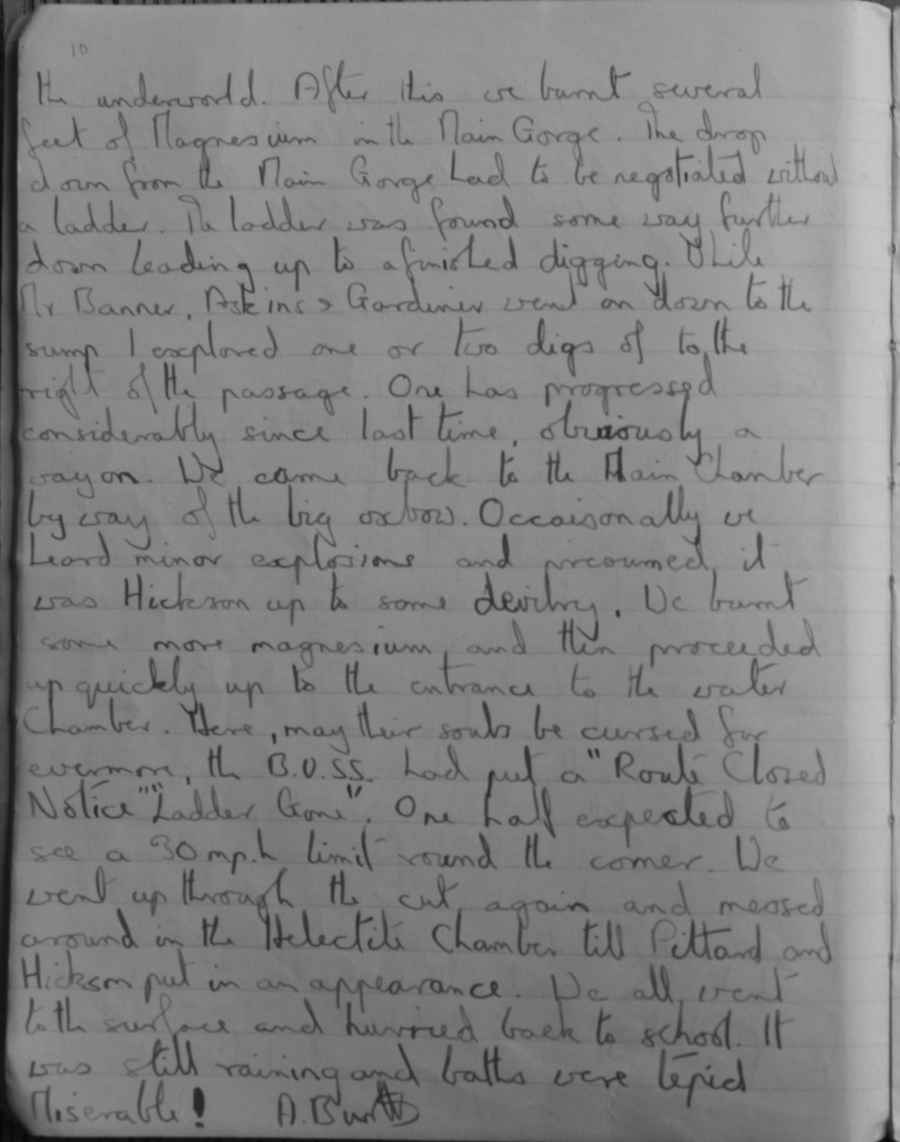 10
the underworld. After this we burnt several
feet of Magnesium in the Main Gorge. The drop
down from the Main Gorge had to be negotiated without
a ladder. The ladder was found some way further
down leading up to a finished digging. While
Mr Banner, Askins & Gardiner went on down to the
sump I explored one or two digs of to the
right of the passage. One has progressed
considerably since last time, obviously a
way on. We came back to the Main Chamber
by way of the big oxbow. Occaisonally we
heard minor explosions and presumed it
was Hickson up to some devilry. We burnt
some more magnesium and then proceeded
up quickly up to the entrance to the water
Chamber. Here, may their souls be cursed for
evermore, the B.U.S.S. had put a "Route Closed
Notice" "Ladder Gone". One half expected to
see a 30 mp.h limit round the corner. We
went up through the cut again and messed
around in the Helectite Chamber till Pittard and
Hickson put in an appearance. We all went
to th surface and hurried back to school. It
was still raining and baths were tepid
Miserable! A.